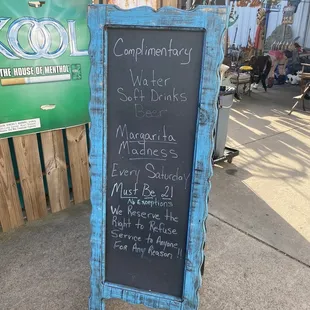 KOOL
THE HOUSE OF MENTHOL
Complimentary
Water
Soft Drinks
Beer
Margarita
Madness
Every Saturday
Must Be 21
No Exceptions
We Reserve the
Right to Refuse
Service to Anyone,
For Any Reason!!